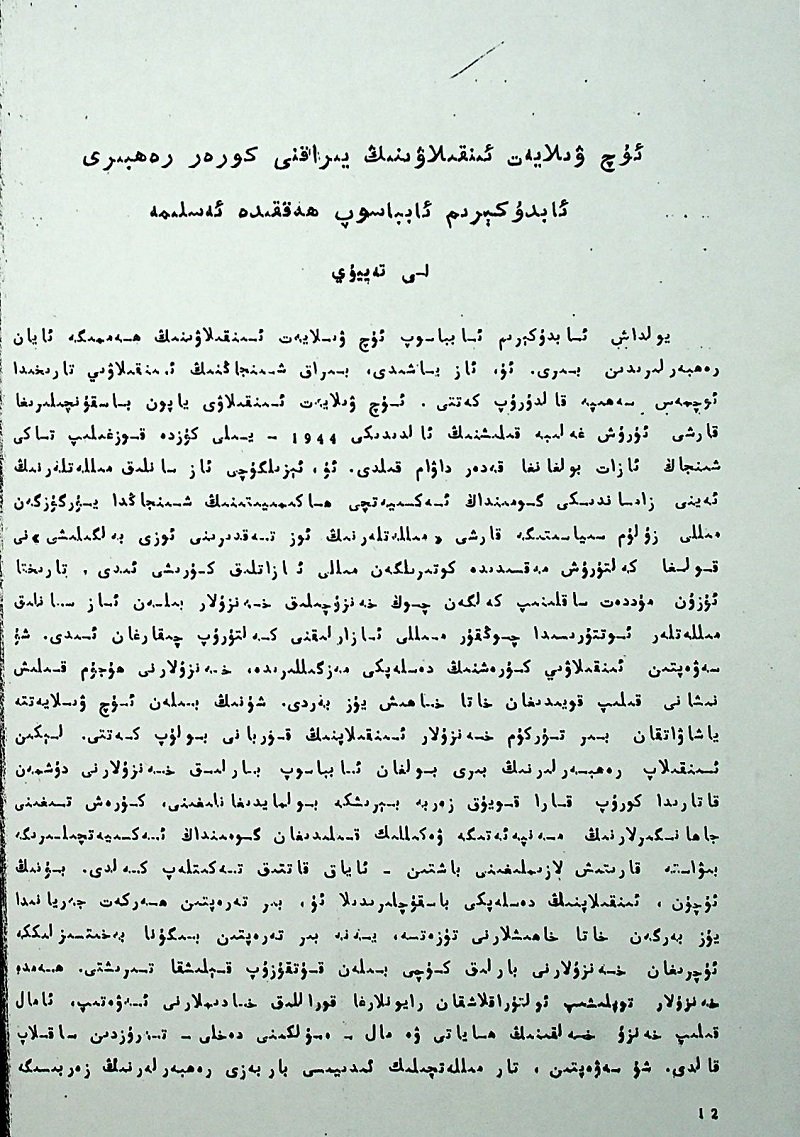 ئۈچ ۋىلايەت ئىنقىلاۋىنىڭ يىراقنى كورەر رەھبىرى
ئابدۇكېرىم ئابباسوپ ھەققىدە ئەسلىمە
لى تەييۈي
يولداش ئابدۇكېرىم ئابباسوپ ئۈچ ۋىلايەت ئىنقىلاۋىنىڭ ھەممىگە ئايان
رەھبەرلىرىدىن بىرى. ئۇ، ئاز ياشىدى، بىراق شىنجاڭنىڭ ئىنقىلاۋىي تارىخىدا
ئوچمەس سەھىپە قالدۇرۇپ كەتتى. ئۈچ ۋىلايەت ئىنقىلاۋى ياپون باسقۇنچىلىرىغا
قارشى ئۇرۇش غەلىبە قىلىشنىڭ ئالدىدىكى 1944 - يىلى كۈزدە قوزغىلىپ تاكى
شىنجاڭ ئازات بولغانغا قەدەر داۋام قىلدى. ئۇ، ئېزىلگۈچى ئاز سانلىق مىللەتلەرنىڭ
ئەينى زاماندىكى گومىنداڭ ئەكسىيەتچى ھاكىمىيىتىنىڭ شىنجاڭدا يۈرگۈزگەن
مىللى زۇلۇم سىياسىتىگە قارشى «مىللەتلەرنىڭ ئوز تەقدىرىنى ئوزى بەلگىلىشى» نى
قولغا كەلتۈرۈش مەقسىدىدە كوتىرىلگەن مىللى ئازاتلىق كۈرىشى ئىدى. تارىختا
ئۇزۇن مۇددەت ساقلىنىپ كەلگەن چوڭ خەنزۇچىلىق خەنزۇلار بىلەن ئاز سانلىق
مىللەتلەر ئوتتۇرىسىدا چوڭقۇر مىللى ئازارلىقنى كەلتۈرۈپ چىقارغان ئىدى. شۇ
سەۋەپتىن ئىنقىلاۋىي كۈرەشنىڭ دەسلەپكى مەزگىللىرىدە، خەنزۇلارنى ھۇجۇم قىلىش
نىشانى قىلىپ قويىدىغان خاتا خاھىش يۈز بەردى. شۇنىڭ بىلەن ئۈچ ۋىلايەتتە
ياشاۋاتقان بىر تۈركۈم خەنزۇلار ئىنقىلاپنىڭ قۇربانى بولۇپ كەتتى. لېكىن
ئىنقىلاپ رەھبەرلىرىنىڭ بىرى بولغان ئابباسوپ بارلىق خەنزۇلارنى دۈشمەن
قاتارىدا كورۇپ قارا قويۇق زەربە بېرىشكە بولمايدىغانلىغىنى، كۈرەش تىغىنى
جاھانگىرلارنىڭ مەنپەئەتىگە ۋەكىللىك قىلىدىغان گومىنداڭ ئەكسىيەتچىلىرىگە
بىۋاستە قارىتىش لازىملىغىنى باشتىن - ئاياق قاتتىق تەكىتلەپ كەلدى. بۇنىڭ
ئۈچۈن، ئىنقىلاپنىڭ دەسلەپكى باسقۇچلىرىدىلا ئۇ، بىر تەرەپتىن ھەركەت جەريانىدا
يۈز بەرگەن خاتا خاھىشلارنى تۈزەتسە، يەنە بىر تەرەپتىن بىگۇنا بەختسىزلىككە
ئۇچرىغان خەنزۇلارنى بارلىق كۈچى بىلەن قۇتقۇزۇپ قېلىشقا تىرىشتى. ھەمدە
خەنزۇلار توپلىشىپ ئولتۇراقلاشقان رايونلارغا قوراللىق خادىملارنى ئەۋەتىپ، ئامال
قىلىپ خەنزۇ خەلقىنىڭ ھاياتى ۋە مال - مۈلكىنى دەخلى - تەرۇزدىن ساقلاپ
قالدى. شۇ سەۋەپتىن، تار مىللەتچىلىك ئىدىيىسى بار بەزى رەھبەرلەرنىڭ زەربىسىگە
12